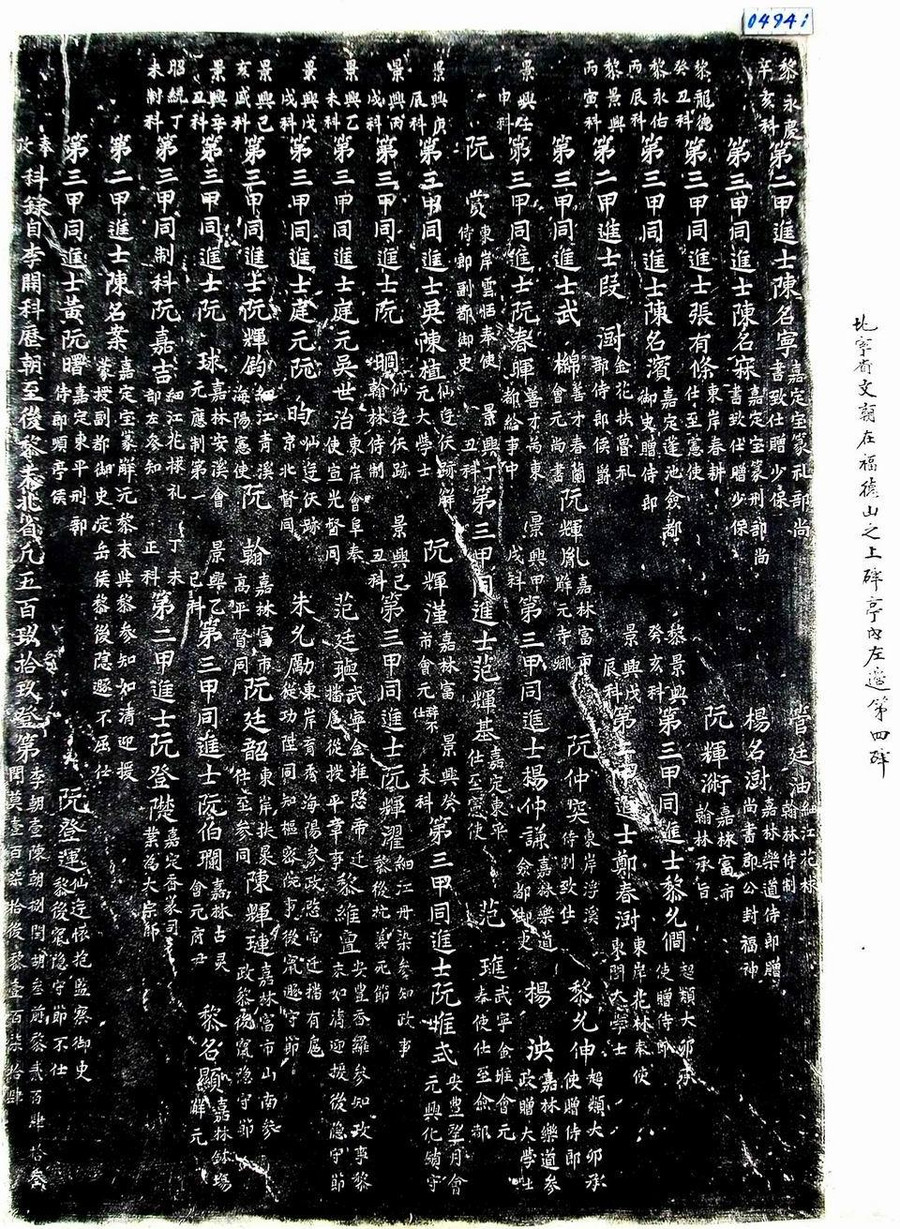 04941
北寧省文廟在福德山之上碑亭內左邊第四碑
黎永慶辛亥科 第二甲進士陳名寧 嘉定宝篆礼部尚書致仕贈少保 管廷油 細江花樑翰林侍制
第三甲同進士陳名寀 嘉定宝篆刑部尚書致仕贈少保 楊名澍 嘉林樂道侍郎贈尚書郡公封福神
黎龍德癸丑科 第三甲同進士張有條 東岸春耕仕至憲使 阮輝漸 嘉林富市翰林承旨
黎永佑丙辰科 第三甲同進士陳名濱 嘉定蓬池僉都御史贈侍郎 黎景興癸亥科 第三甲同進士黎允僩 超類大卯承使贈侍郎
黎景興丙寅科 第二甲進士段澍 金花扶魯礼部侍郎侯爵 景興戊辰科 第二甲進士鄭春澍 東岸花林奉使東閣大學士
第三甲同進士武棉 善才春蘭會元尚書 阮輝胤 嘉林富市解元寺卿 阮仲突 東岸浮溪侍制致仕 黎允伸 超類大卯承使贈侍郎
景興壬申科 第三甲同進士阮春暉 善才尚東都給事中 景興甲戌科 第三甲同進士楊仲謙 嘉林樂道僉都御史 楊泱 嘉林樂道參政贈大學士
阮賞 東岸雲恬奉使侍郎副都御史 景興丁丑科 第三甲同進士范輝基 嘉定東平仕至憲使 范璡 武寧金堆會元奉使仕至僉都
景興庚辰科 第三甲同進士吳陳植 仙逰伕跡解元大學士 阮輝漌 嘉林富市會元 景興癸未科 第三甲同進士阮惟式 安豊望月會元興化鎮守
景興丙戌科 第三甲同進士阮 仙逰伕跡翰林侍制 景興己丑科 第三甲同進士阮輝濯 細江丹染參知政事黎後抗莫元節
景興乙未科 第三甲同進士庭元吳世治 東岸會阜奉使宣光督同 范廷璵 武寧金堆愍帝迁播扈從授平章事 黎維亶 安豊香羅參知政事黎末如清迎援後隐守節
景興戊戌科 第三甲同進士庭元阮昀 仙逰伕跡京北督同 朱允勵 東岸育秀海陽參政愍帝迁播有扈從功陞同知樞密院事後窜遯守節
景興己亥盛科 第三甲同進士阮輝鈞 細江青溪海陽憲使 阮翰 嘉林富市高平督同 阮廷韶 東岸扶㫟仕至參同 陳輝璉 嘉林富市山南參政黎後窜隐守節
景興辛丑科 第三甲同進士阮球 嘉林安溪會元應制第一 景興乙巳科 第三甲同進士阮伯瓓 嘉林古灵會元府尹 黎名顯 嘉林缽塲解元
昭統丁未制科 第三甲同制科阮嘉吉 細江花樑礼部左參知 丁未正科 第二甲進士阮登𣚽 嘉定香篆司業為大宗師
第二甲進士陳名案 嘉定宝篆解元黎末典黎參知如清迎援蒙授副都御史定岳侯黎後隐遯不屈仕
第三甲同進士黃阮曙 嘉定東平刑部侍郎項亭侯 阮登運 仙逰懷抱監察御史黎後窜隐守節不仕
奉攷科録自李開科歷朝至後黎末北省凢五百玖拾玖登第 李朝壹陳朝捌閏胡叁前黎貳百肆拾叁閏莫壹百柒拾後黎壹百柒拾肆